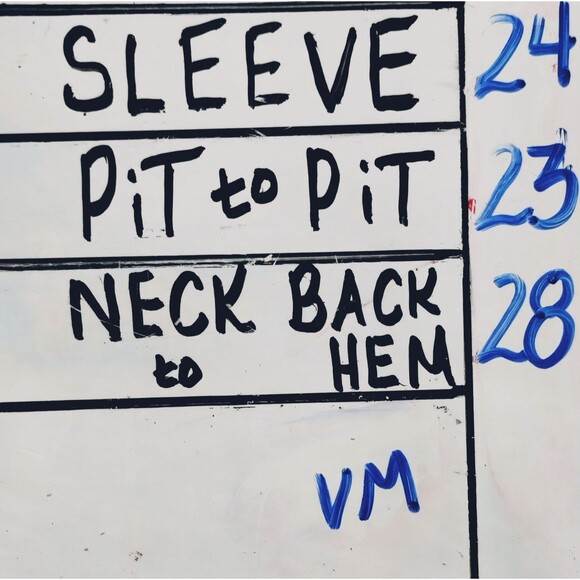 SLEEVE 24
PiT to PiT 23
NECK BACK 28
to HEM
VM